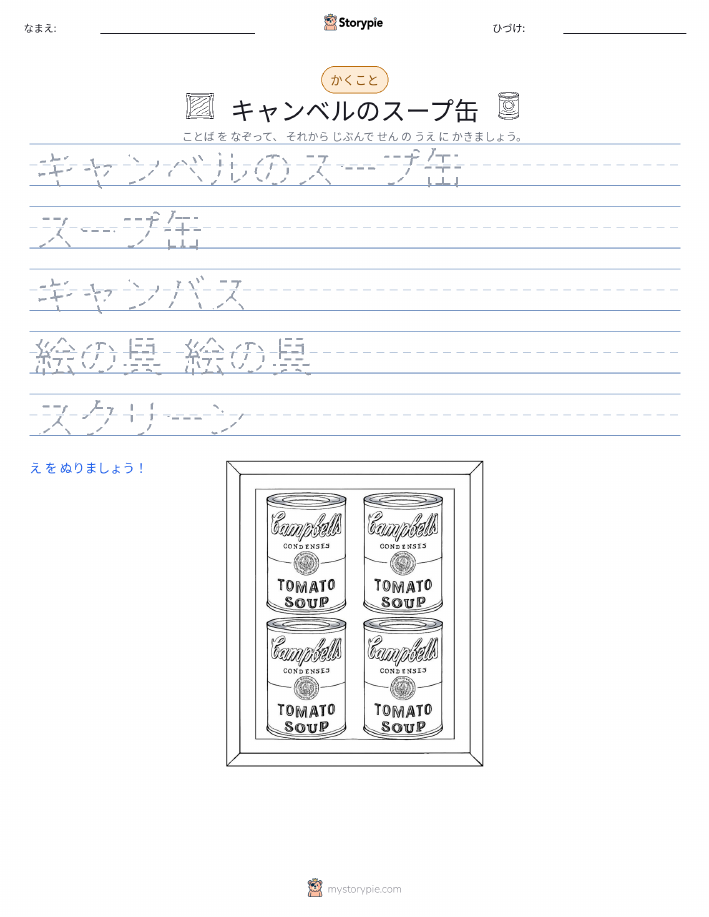 なまえ:
Storypie
ひづけ:
かくこと
キャンベルのスープ缶
ことば を なぞって、 それから じぶんで せん の うえ に かきましょう。
キャンベルのスープ缶
スープ缶
キャンバス
絵の具 絵の具
スクリーン
え を ぬりましょう！
Campbell's Campbell's
CONDENSED CONDENSED
TOMATO TOMATO
SOUP SOUP
Campbell's Campbell's
CONDENSED CONDENSED
TOMATO TOMATO
SOUP SOUP
mystorypie.com